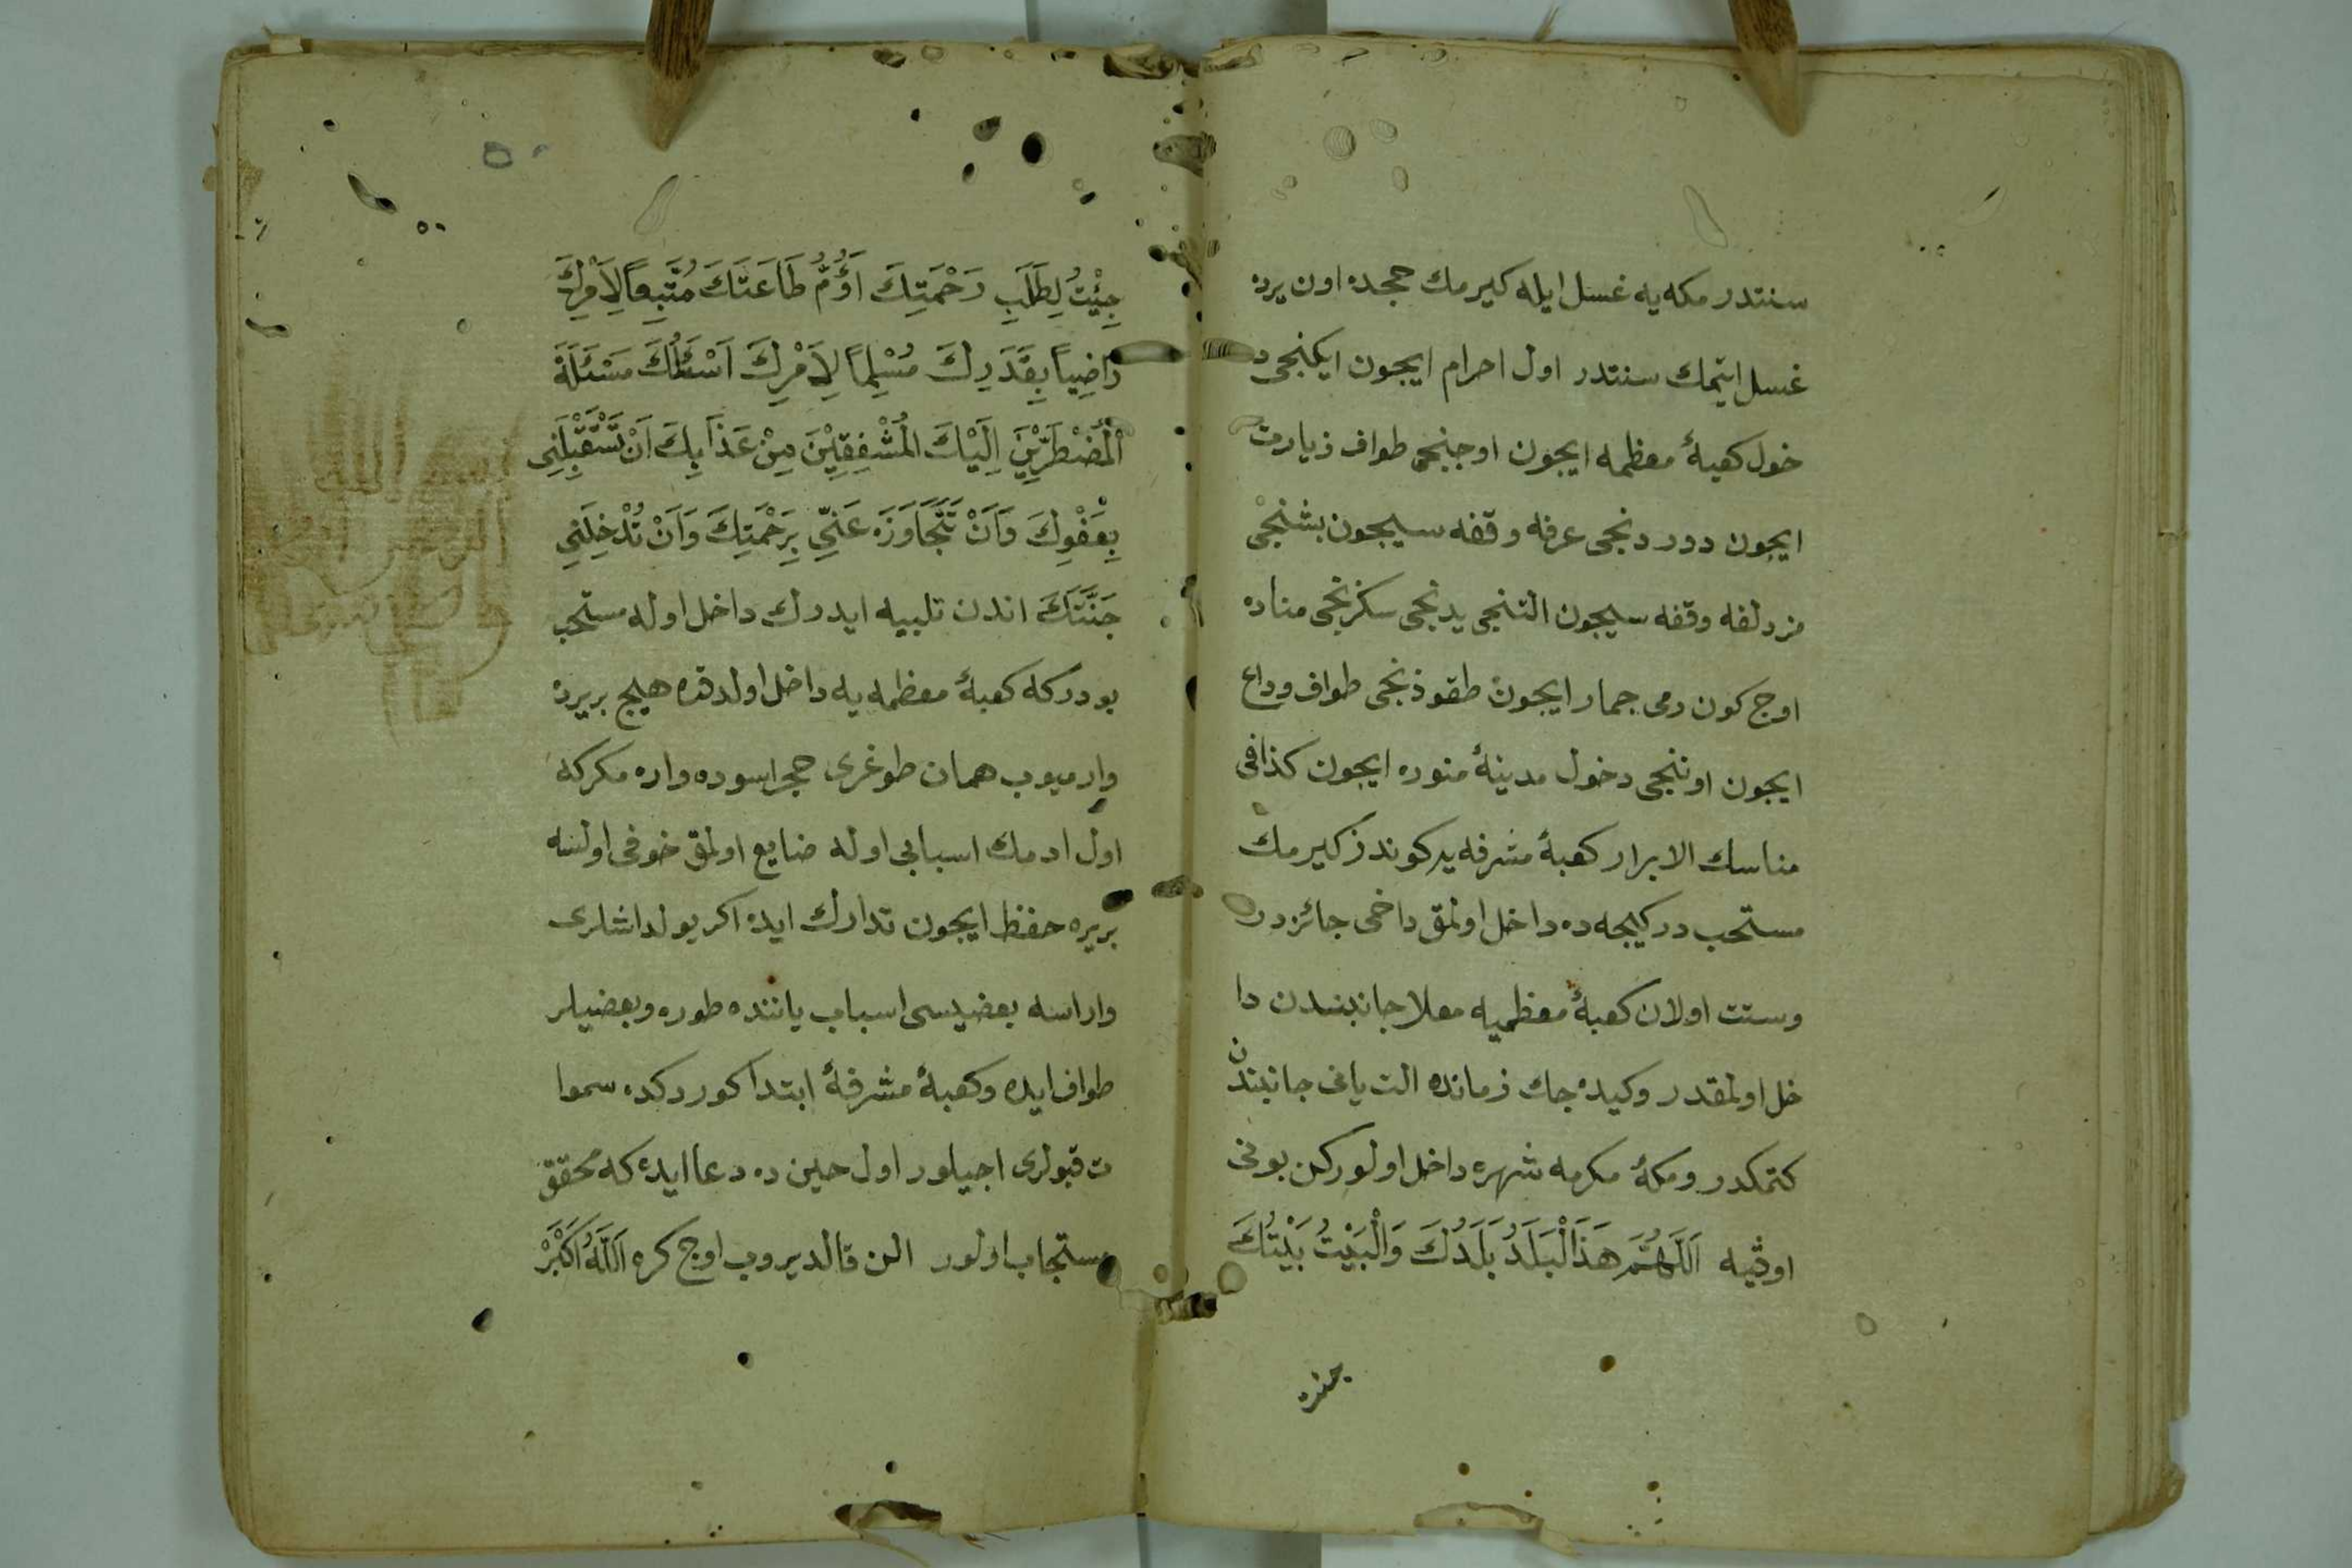 سنتدر مكه يه غسل ايله كيرمك حجده اون يرده
غسل ايتمك سنتدر اول احرام ايجون ايكنجى د
خول كعبۀ معظمه ايجون اوجنجى طواف زيارت
ايجون دوردنجى عرفه وقفه سيجون بشنجى
مزدلفه وقفه سيجون التنجى يدنجى سكزنجى مناده
اوج كون رمى جمار ايجون طقوزنجى طواف وداع
ايجون اوننجى دخول مدينۀ منوره ايجون كذا فى
مناسك الابرار كعبۀ مشرفه يه كوندز كيرمك
مستحب در كيجه ده داخل اولمق داخى جائزدر
وسنت اولان كعبۀ معظميه معلا جانبندن دا
خل اولمقدر وكيده جك زمانده الت يانى جانبندن
كتمكدر ومكۀ مكرمه شهره داخل اولوركن بونى
اوقيه اَللَّهُمَّ هَذَا الْبَلَدُ بَلَدُكَ وَالْبَيْتُ بَيْتُكَ
جئت
جِئْتُ لِطَلَبِ رَحْمَتِكَ اَؤُمُّ طَاعَتَكَ مُتَّبِعاً لِاَمْرِكَ
رَاضِياً بِقَدَرِكَ مُسْلِماً لِاَمْرِكَ اَسْئَلُكَ مَسْئَلَةَ
الْمُضْطَرِّيْنَ اِلَيْكَ الْمُشْفِقِيْنَ مِنْ عَذَابِكَ اَنْ تَسْتَقْبِلَنِى
بِعَفْوِكَ وَاَنْ تَتَجَاوَزَ عَنِّي بِرَحْمَتِكَ وَاَنْ تُدْخِلَنِي
جَنَّتَكَ اندن تلبيه ايدرك داخل اوله مستحب
بودركه كعبۀ معظمه يه داخل اولدقده هيج بريرده
وارميوب همان طوغرى حجر اسوده واره مكركه
اول ادمك اسبابى اوله ضايع اولمق خوفى اولسه
بريره حفظ ايجون تدارك ايده اكر يولداشلرى
وارايسه بعضيسى اسباب ياننده طوره وبعضيلر
طواف ايده وكعبۀ مشرفۀ ابتدا كوردكده سموا
ت قبولرى اجيلور اول حين ده دعا ايده كه محقق
مستجاب اولور الن قالديروب اوج كره اَللَّهُ اَكْبَرْ